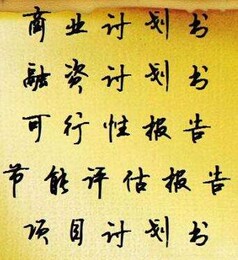 商业计划书
融资计划书
可行性报告
节能评估报告
项目计划书